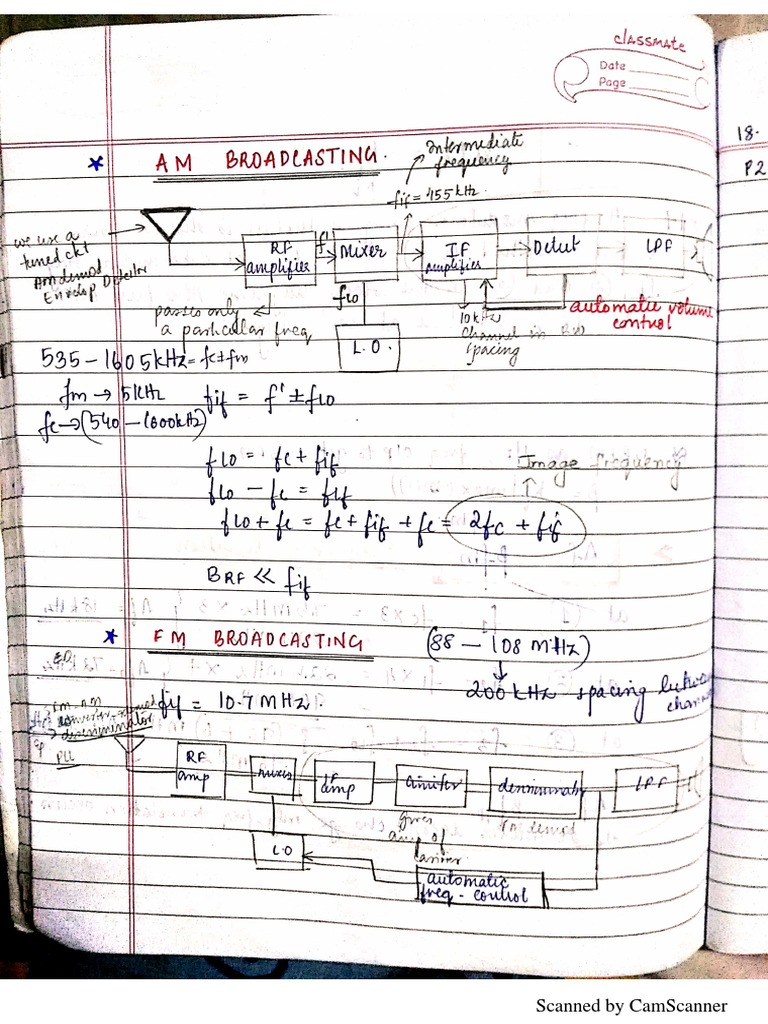 classmate
Date
Page
18.
P2
* AM BROADCASTING.
Intermediate
frequency
fif = 455kHz.
we use a
tuned ckt
Am demod
Envelop Detector
RF
amplifier
f'
Mixer
IF
amplifier
Detect
LPF
passes only
a particular freq
fLO
L.O.
10kHz
channel in BW
spacing
automatic volume
control
535 - 1605kHz = fc±fm
fm → 5kHz
fc → (540 - 1600kHz)
fif = f' ± fLO
fLO = fc + fif
fLO - fc = fif
fLO + fc = fc + fif + fc = 2fc + fif
Image frequency
BRF << fif
* FM BROADCASTING
(88 - 108 MHz)
200 kHz spacing between
fif = 10.7 MHz
FM-AM
discriminator
PLL
RF
amp
mixer
IF
amp
limiter
LPF
gives
amp of
carrier
FM demod
L.O
automatic
freq. control
Scanned by CamScanner